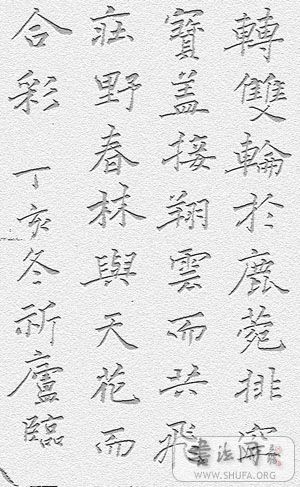 轉雙輪於鹿菀排空
寶盖接翔雲而共飛
莊野春林與天花而
合彩 丁亥冬祈廬臨
書法网
WWW.SHUFA.ORG